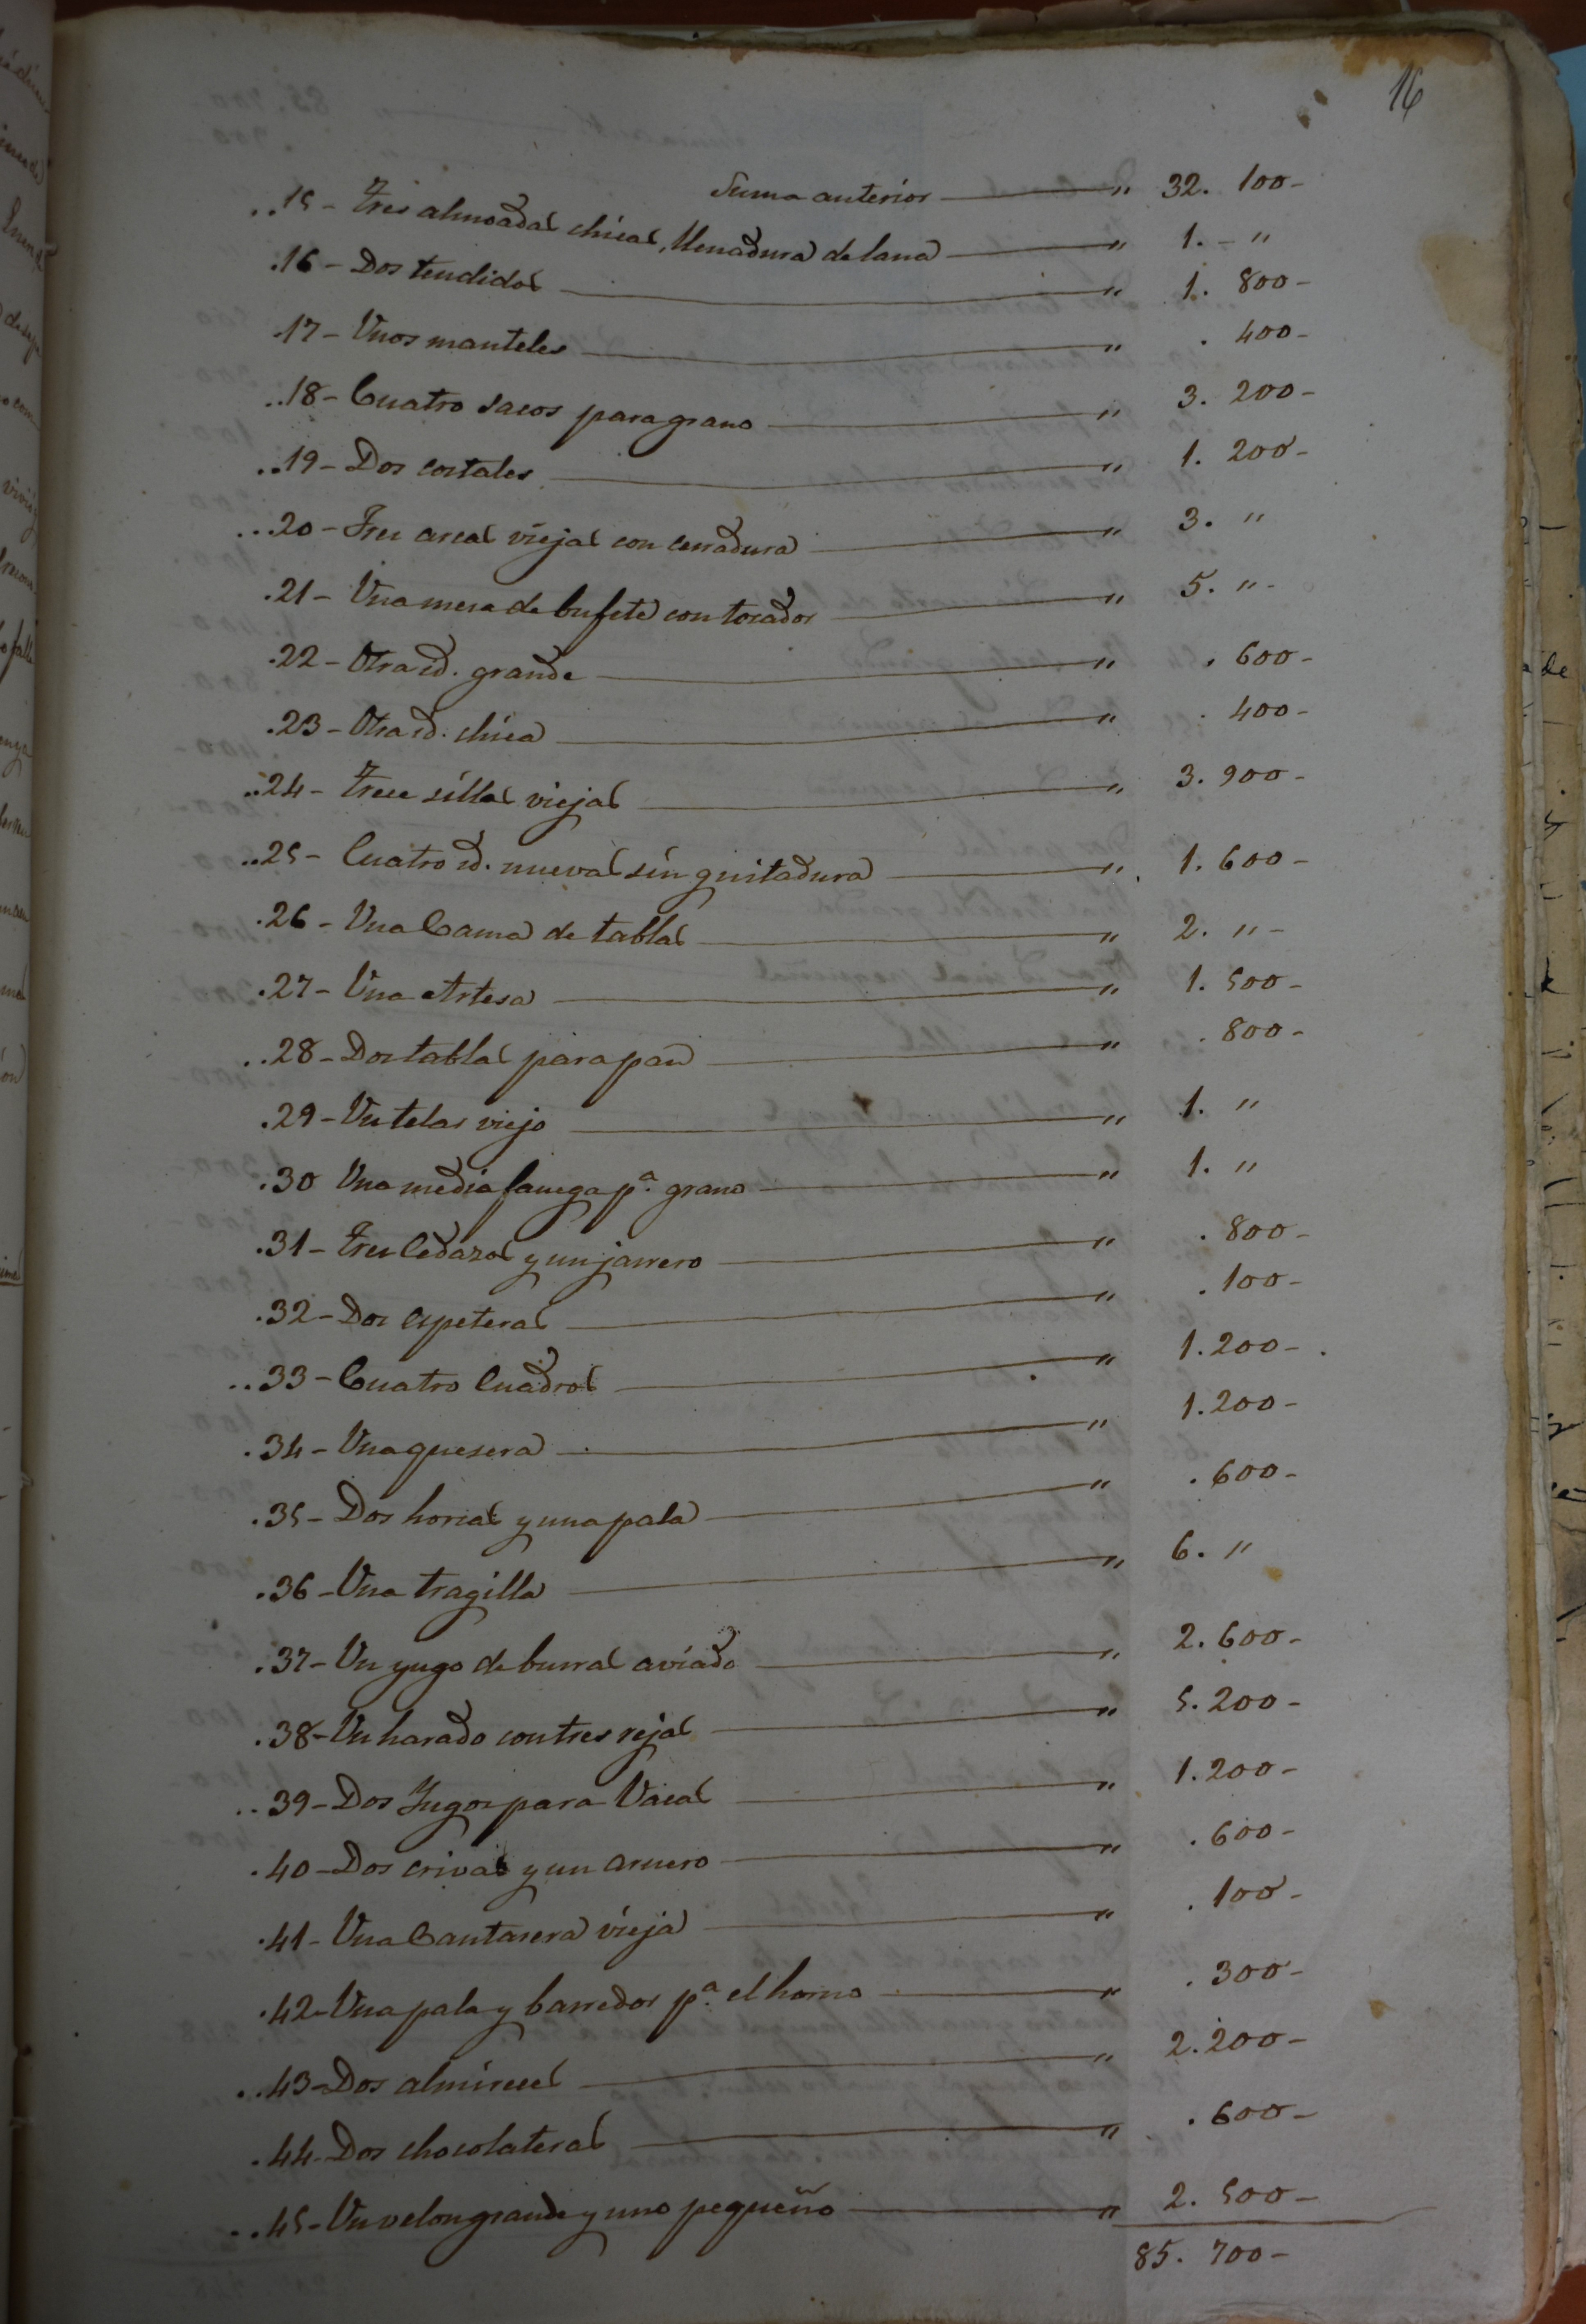 16
Suma anterior " 32. 100-
..15- Tres almoadas chicas, llenadura de lana " 1. - "
.16- Dos tendidos " 1. 800-
.17- Unos manteles " . 400-
..18- Cuatro sacos para grano " 3. 200-
..19- Dos costales " 1. 200-
...20- Tres arcas viejas con cerradura " 3. "
.21- Una mesa de bufete con tocador " 5. "-
.22- Otra id. grande " . 600-
.23- Otra id. chica " . 400-
..24- Trece sillas viejas " 3. 900-
..25- Cuatro id. nuevas sin guitadura " 1. 600-
.26- Una Cama de tablas " 2. "-
.27- Una Artesa " 1. 500-
..28- Dos tablas para pan " . 800-
.29- Un telar viejo " 1. "
.30 Una media fanega pª. grano " 1. "
.31- Tres Cedazos y un jarrero " . 800-
.32- Dos espeteras " . 100-
..33- Cuatro Cuadros " 1. 200-
.34- Una quesera " 1. 200-
.35- Dos horcas y una pala " . 600-
.36- Una tragilla " 6. "
.37- Un yugo de burras aviado " 2. 600-
.38- Un harado con tres rejas " 5. 200-
..39- Dos Yugos para Vacas " 1. 200-
.40- Dos crivas y un arnero " . 600-
.41- Una Cantarera vieja " . 100-
.42- Una pala y barredor pª. el horno " . 300-
..43- Dos almireces " 2. 200-
.44- Dos chocolateras " . 600-
..45- Un velon grande y uno pequeño " 2. 500-
85. 700-